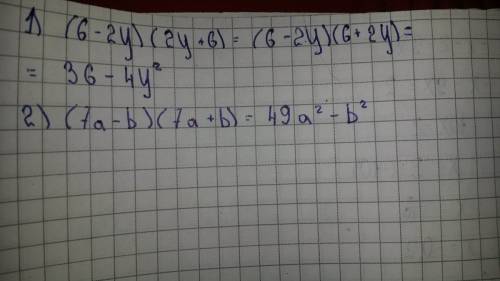 1) (6-2y)(2y+6) = (6-2y)(6+2y)=
= 36-4y²
2) (7a-b)(7a+b) = 49a²-b²